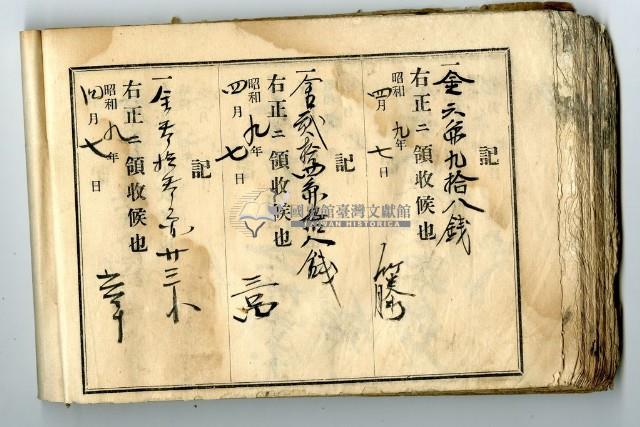 記
一金六円九拾八銭
右正ニ領收候也
昭和九年
四月七日
藤
記
一金貳拾四円拾八銭
右正ニ領收候也
昭和九年
四月七日
記
一金参拾参円廿三小
右正ニ領收候也
昭和九年
四月七日
國史館臺灣文獻館
TAIWAN HISTORICA